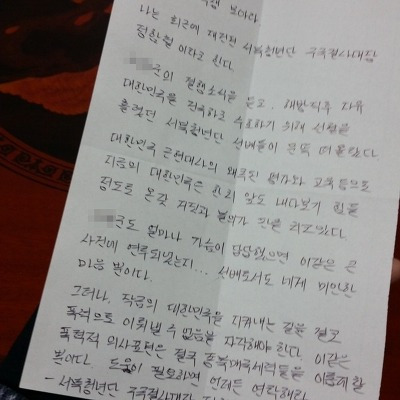 보아라
나는 최근에 재건된 서북청년단 구국결사대장
정함철 이라고 한다.
군의 소식을 듣고, 해방직후 자유
대한민국을 건국하고 수호하기 위해 선혈을
흘렸던 서북청년단 선배들이 문뜩 떠올랐다
대한민국 근현대사의 왜곡된 평가와 교육 등으로
지금의 대한민국은 한치 앞도 내다보기 힘들
정도로 온갖 거짓과 불의가 판을 치고있다.
군도 얼마나 가슴이 답답했으면 이같은 큰
사건에 연루되었는지... 선배로서도 네게 미안한
마음 뿐이다.
그러나, 작금의 대한민국을 지켜내는 길은 결코
폭력으로 이뤄낼 수 없음을 자각해야 한다. 이같은
폭력적 의사표현은 결국 종북매국세력들을 이롭게 할
뿐이다. 도움이 필요하면 언제든 연락해라
- 서북청년단 구국결사대장